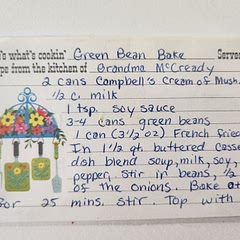 's what's cookin' Green Bean Bake Serves
pe from the kitchen of Grandma McCready
2 cans Campbell's Cream of Mush.
1/2 c. milk
1 tsp. soy sauce
3-4 cans green beans
1 can (3 1/2 oz) French fried
In 1 1/2 qt. buttered casse
dish blend soup, milk, soy,
pepper, stir in beans, 1/2
of the onions. Bake at
for 25 mins. Stir. Top with